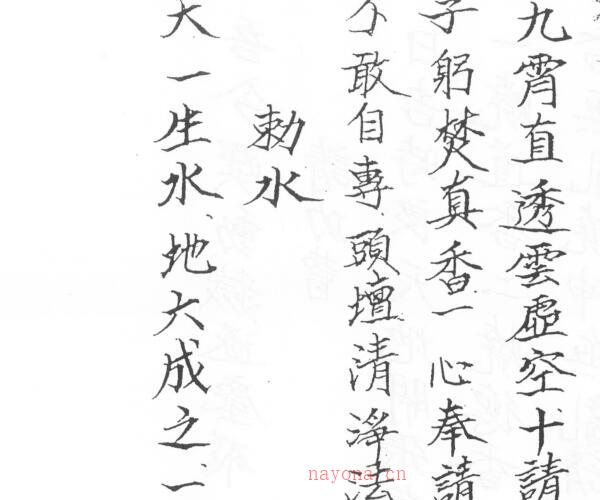 九霄直透雲虛空十請
子躬焚真香一心奉請
不敢自專頭壇清淨法
勅水
天一生水地六成之一
nayona.cn